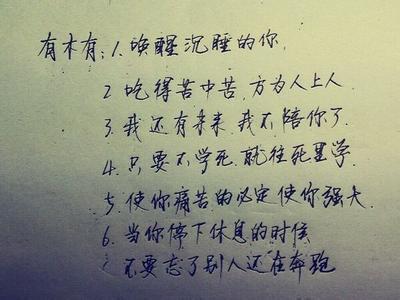 有木有:1.唤醒沉睡的你,
2 吃得苦中苦,方为人上人
3.我还有未来,我不陪你了.
4.只要不学死,就往死里学.
5.使你痛苦的必定使你强大.
6.当你停下休息的时候
不要忘了别人还在奔跑